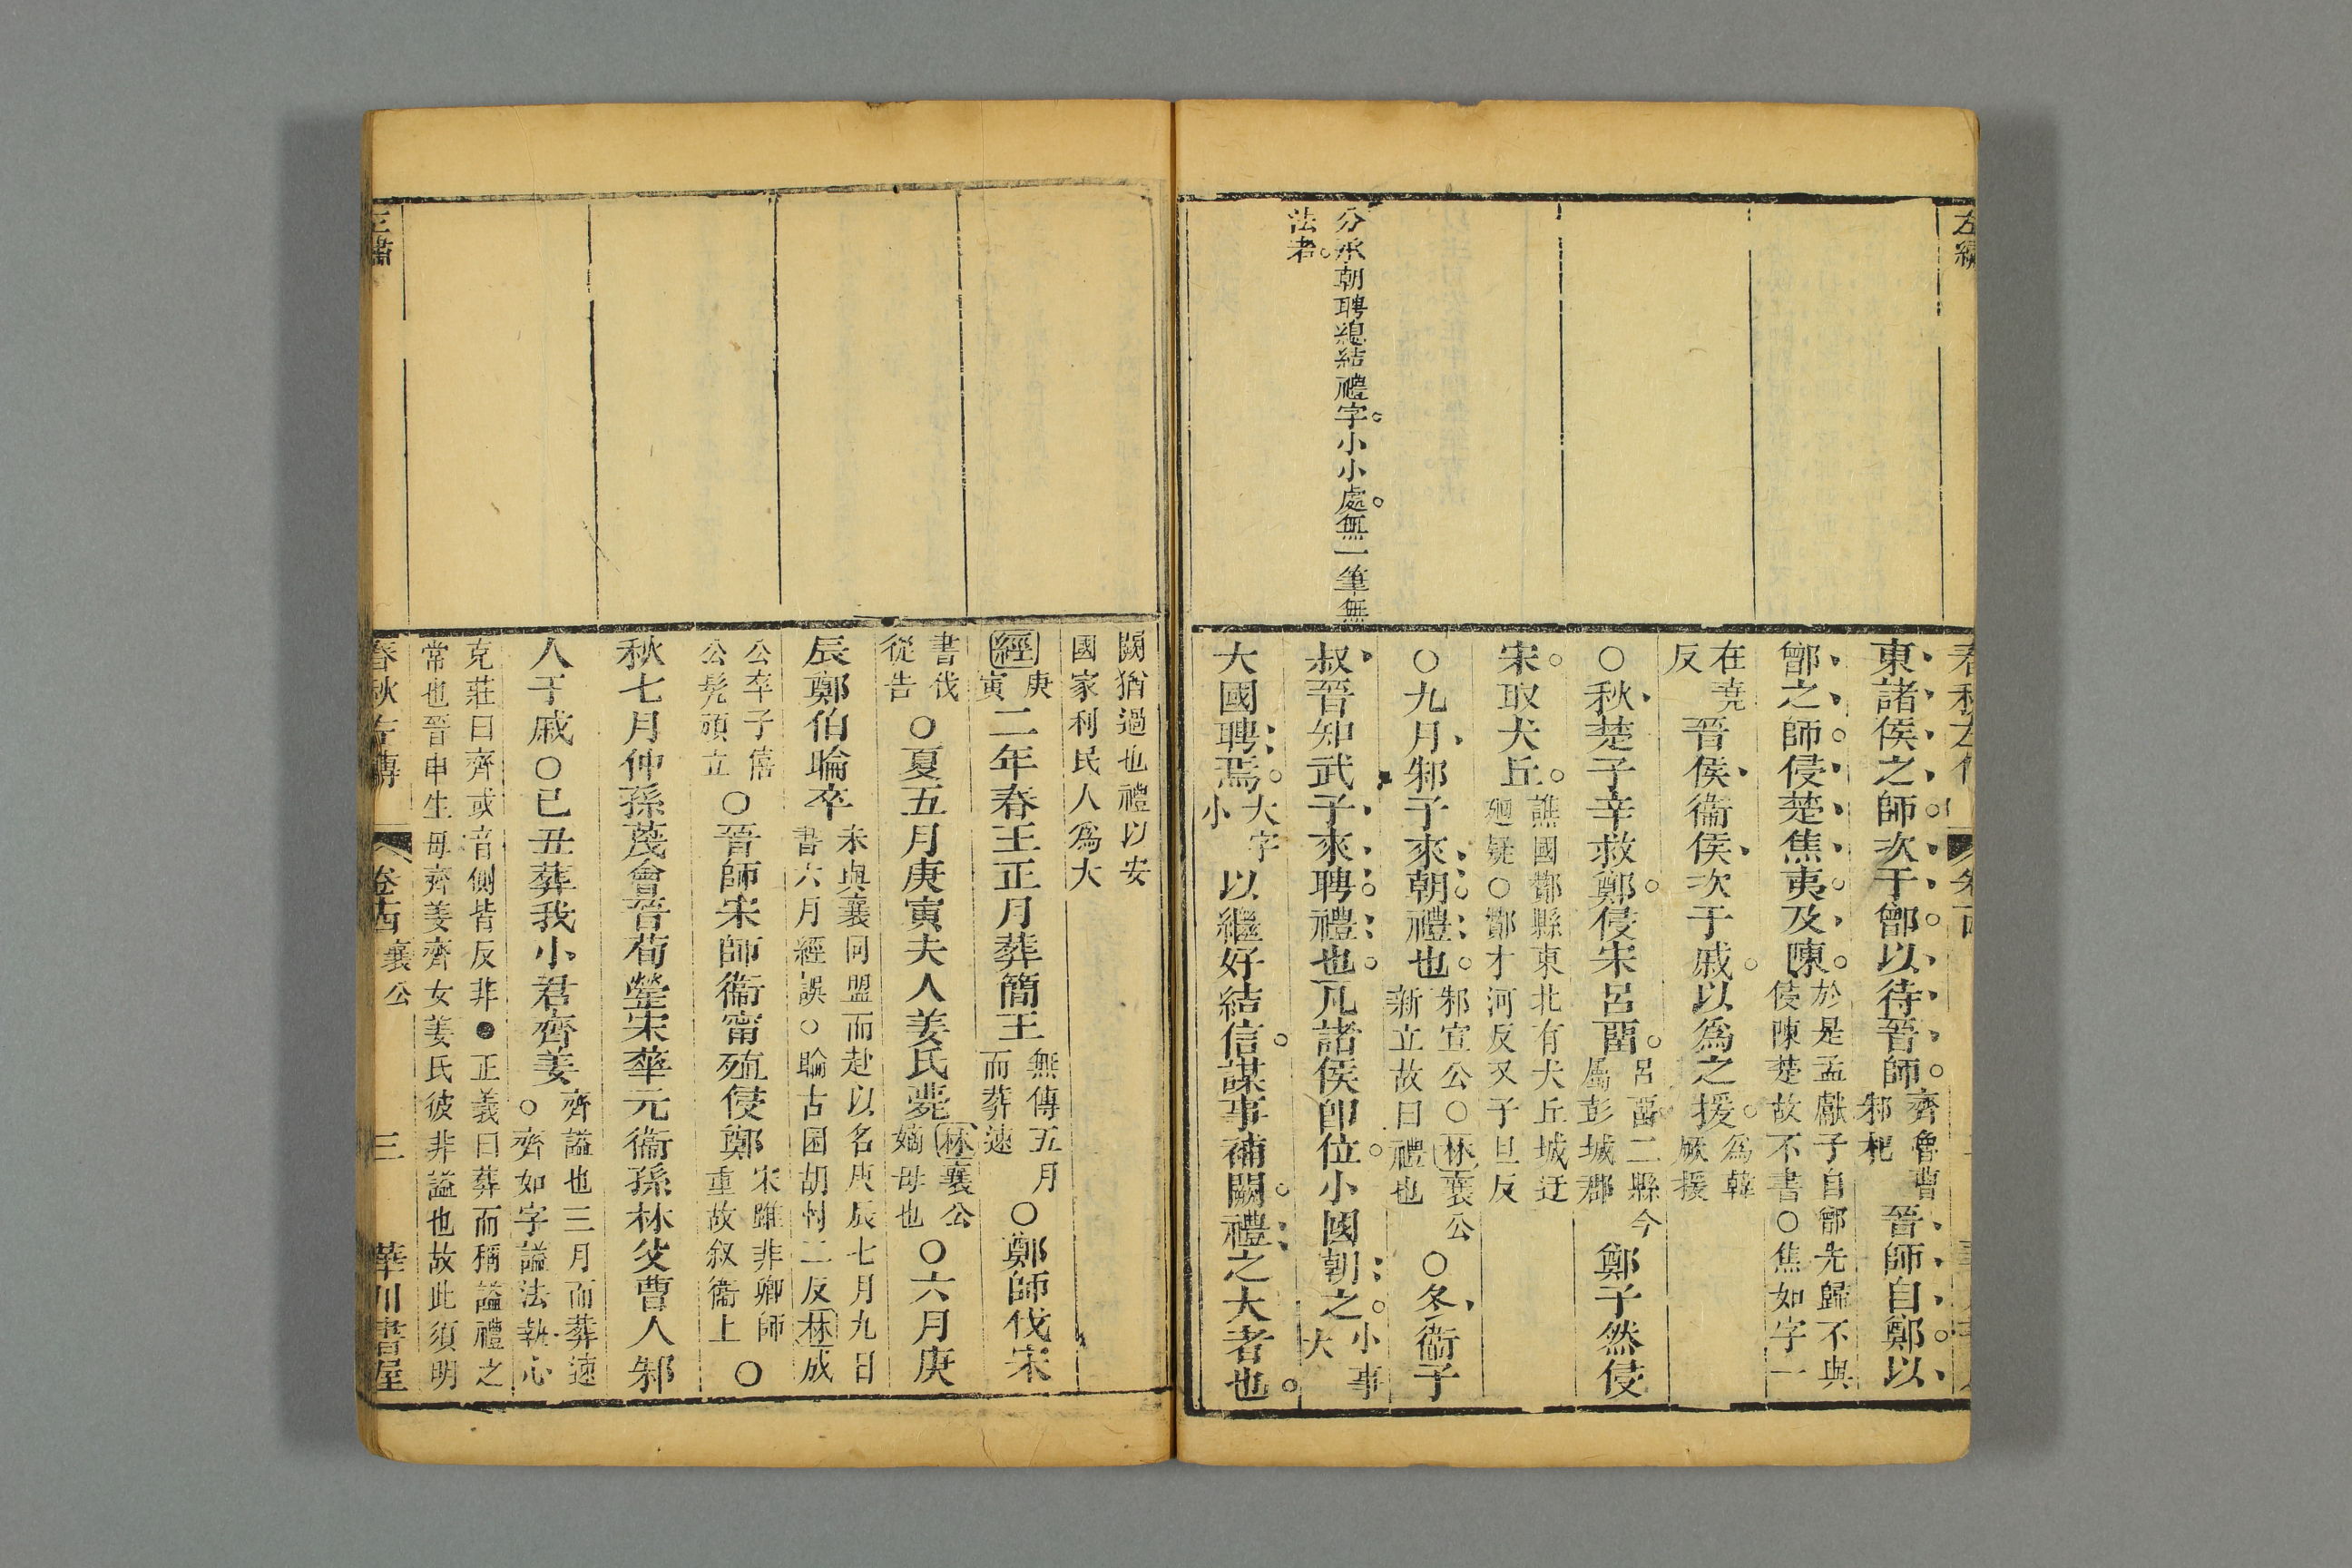 左繡
分承朝聘總結禮字小小處無一筆無
法者
東諸侯之師次于鄫以待晉師齊魯曹邾杞晉師自鄭以
鄫之師侵楚焦夷及陳於是孟獻子自鄫先歸不與侵陳楚故不書○焦如字一
在堯反晉侯衞侯次于戚以爲之援爲韓厥援
○秋楚子辛救鄭侵宋呂畱呂畱二縣今屬彭城郡鄭子然侵
宋取犬丘譙國酇縣東北有犬丘城迂廻疑○酇才河反又子旦反
○九月邾子來朝禮也邾宣公○林襄公新立故曰禮也○冬衞子
叔晉知武子來聘禮也凡諸侯卽位小國朝之小事大
大國聘焉大字小以繼好結信謀事補闕禮之大者也
闕猶過也禮以安國家利民人爲大
經庚寅二年春王正月葬簡王無傳五月而葬速○鄭師伐宋
書伐從告○夏五月庚寅夫人姜氏薨林襄公嫡母也○六月庚
辰鄭伯睔卒未與襄同盟而赴以名庚辰七月九日書六月經誤○睔古困胡忖二反林成
公卒子僖公髡頑立○晉師宋師衞甯殖侵鄭宋雖非卿師重故敘衞上○
秋七月仲孫蔑會晉荀罃宋華元衞孫林父曹人邾
人于戚○已丑葬我小君齊姜齊謚也三月而葬速○齊如字謚法執心
克莊曰齊或音側皆反非●正義曰葬而稱謚禮之常也晉申生母齊姜齊女姜氏彼非謚也故此須明
春秋左傳 卷十四 襄公 三 華川書屋